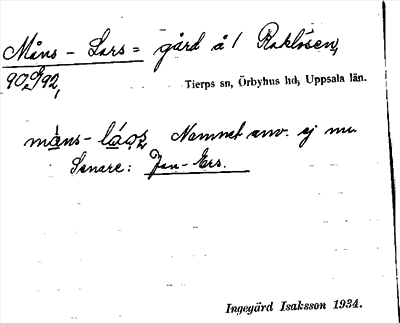 Måns - Lars = gård å 1 Raklösen,
90 d/92,
Tierps sn, Örbyhus hd, Uppsala län.
måns- láoʒ Namnet anv. ej nu.
Senare: Jan-Ers.
Ingegärd Isaksson 1934.